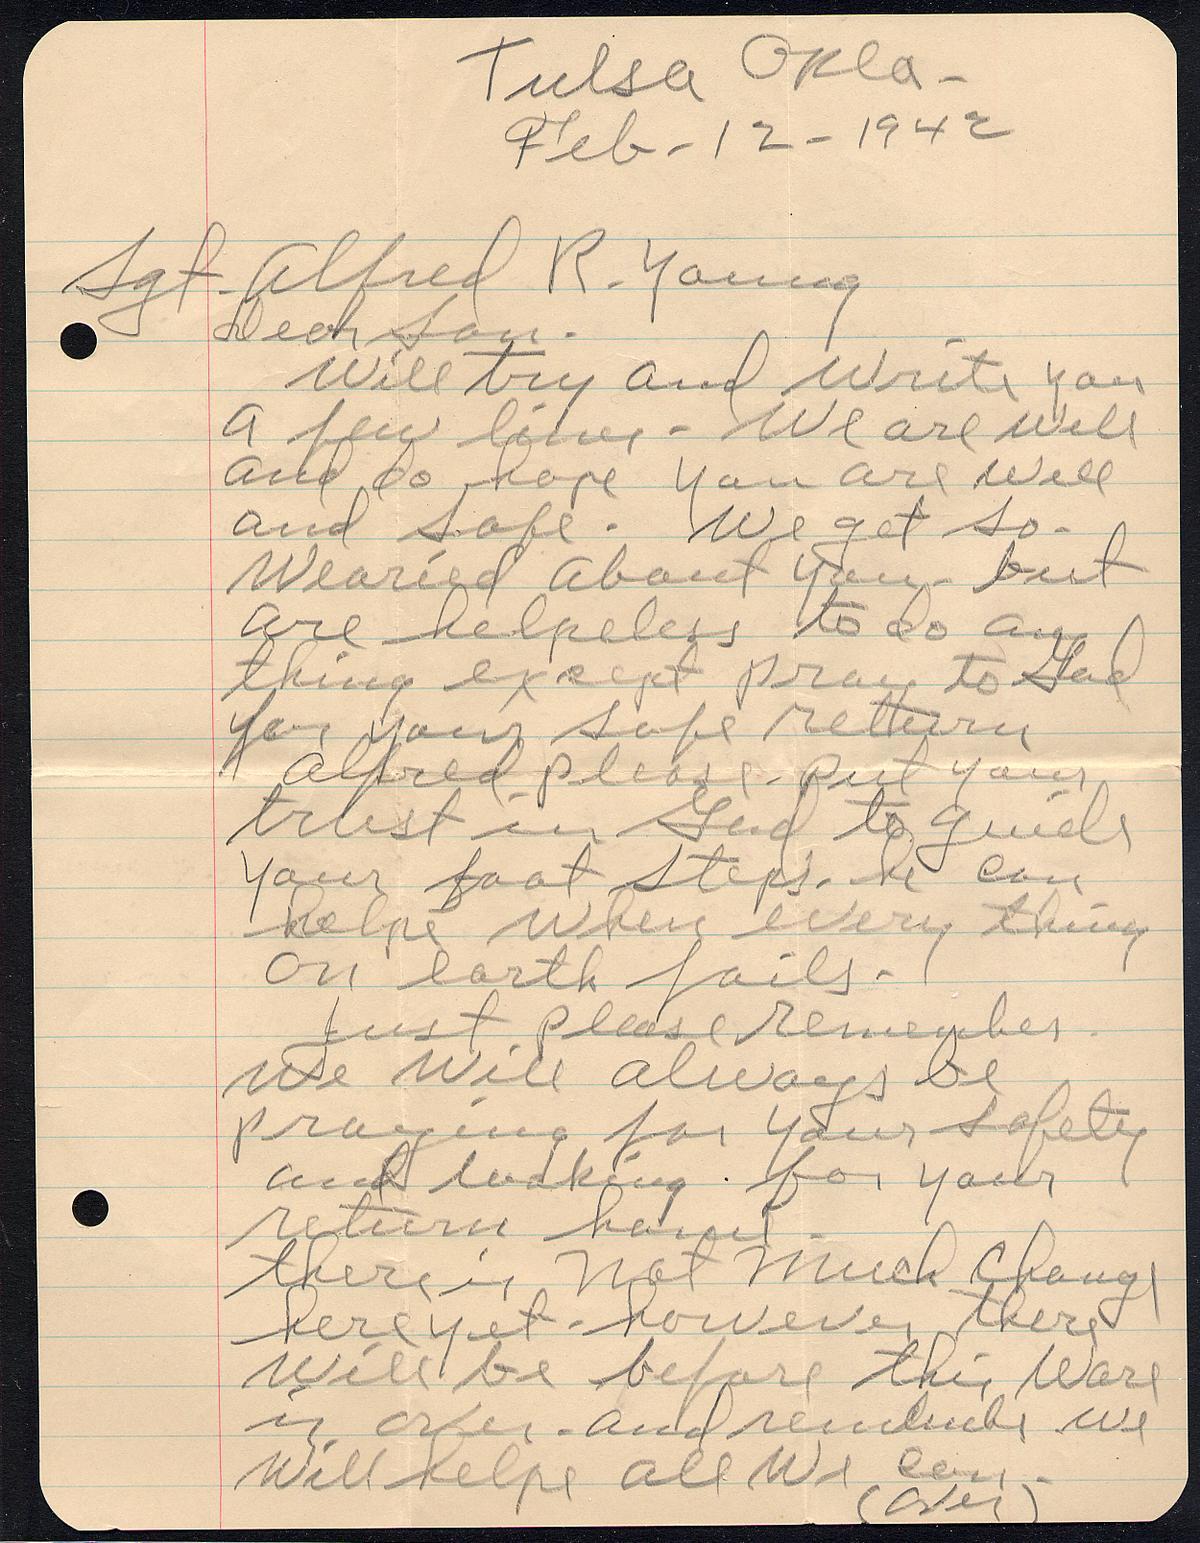 Tulsa Okla -
Feb - 12 - 1942
Sgt. Alfred R. Young
Dear Son.
Will try and Write you
A few lines - We are well
and do hope you are well
and safe. We get so-
Wearied About you - but
are helpless to do any
thing except pray to God
for your safe return
Alfred please put your
trust in God to guide
your foot steps. he can
helpe when every thing
on earth fails -
Just please remember.
We Will always be
praying for your safety
and looking for your
return home.
there is Not Much Change
here yet - however there
will be before this Ware
is over - and remember we
Will helpe all We can -
(over)